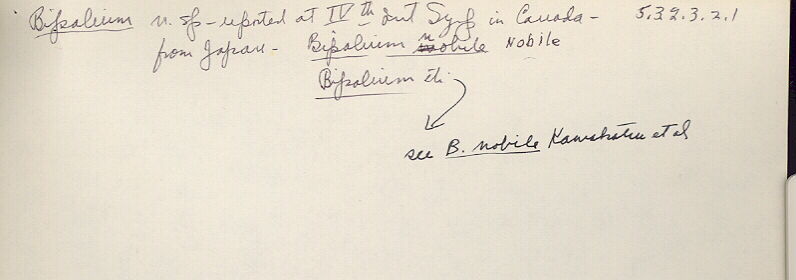 Bipalium n. sp - reported at IVth Int Symp in Canada - 5.39.3.2.1
from Japan - Bipalium nobile Nobile
Bipalium
see B. nobile Kawakatsu et al